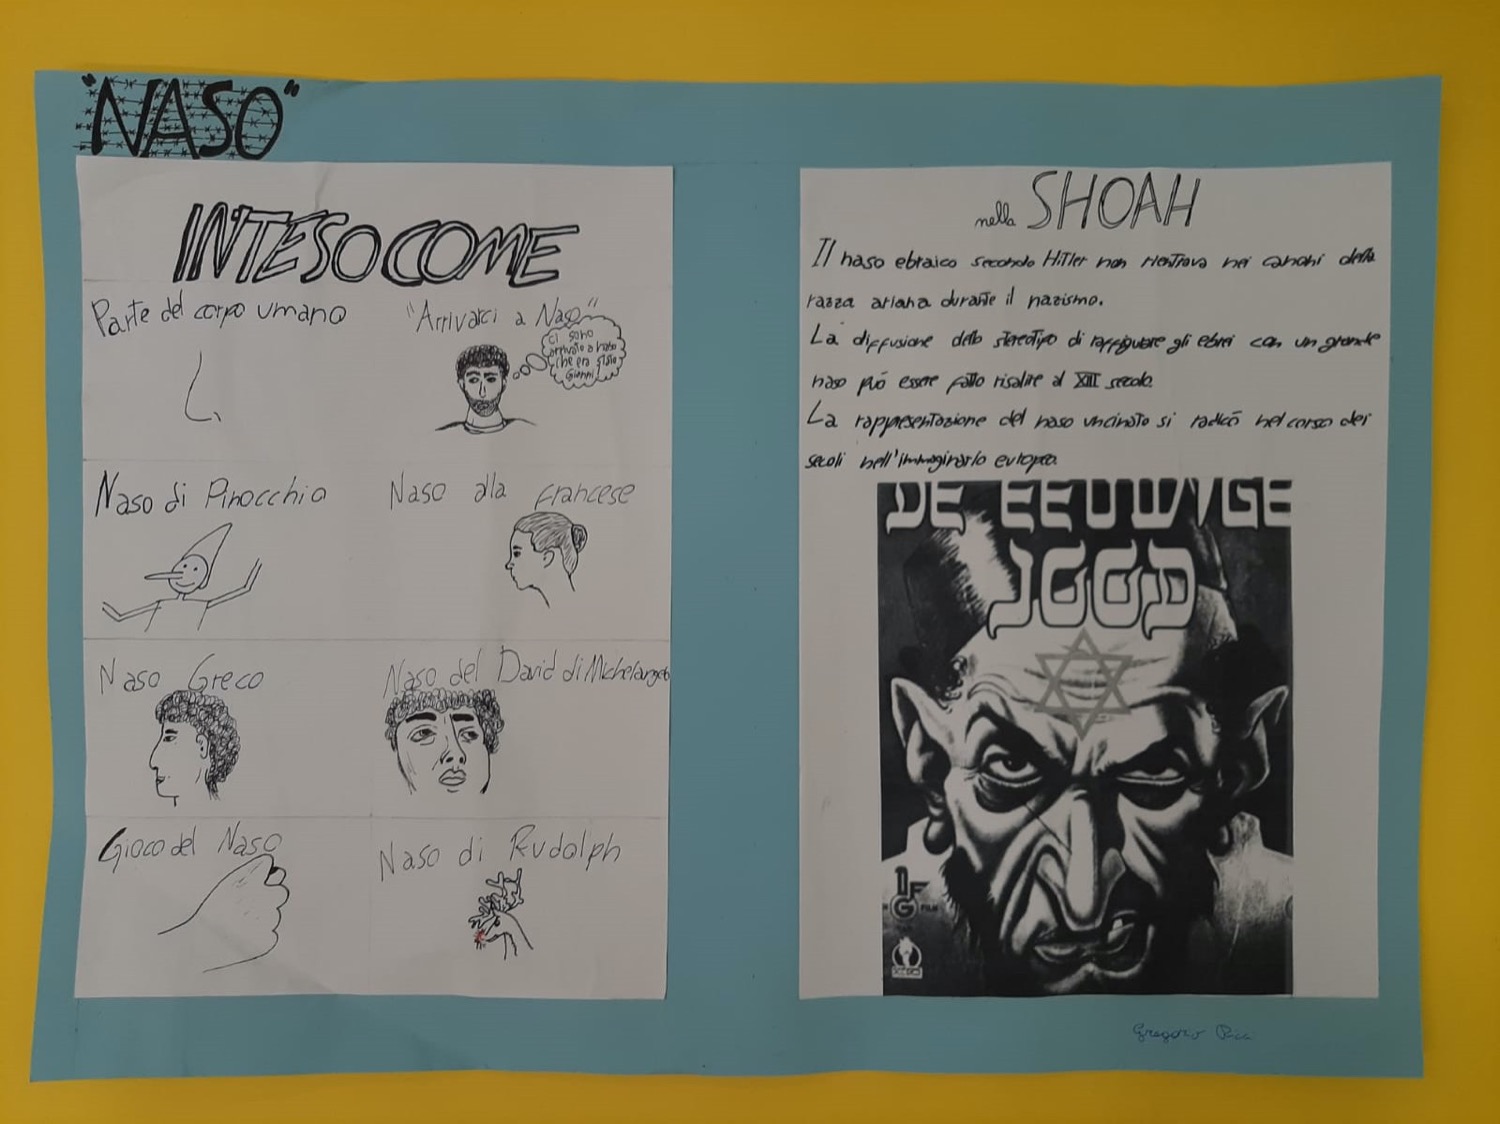 "NASO"
INTESO COME
Parte del corpo umano
"Arrivarci a Naso"
ci sono
arrivato a naso
che era stato
Gianni
Naso di Pinocchio
Naso alla francese
Naso Greco
Naso del David di Michelangelo
Gioco del Naso
Naso di Rudolph
nella SHOAH
Il naso ebraico secondo Hitler non rientrava nei canoni della
razza ariana durante il nazismo.
La diffusione dello stereotipo di raffigurare gli ebrei con un grande
naso può essere fatto risalire al XIII secolo.
La rappresentazione del naso uncinato si radicò nel corso dei
secoli nell'immaginario europeo.
DE EEUWIGE
JOOD
DFG
FILM
Gregorio